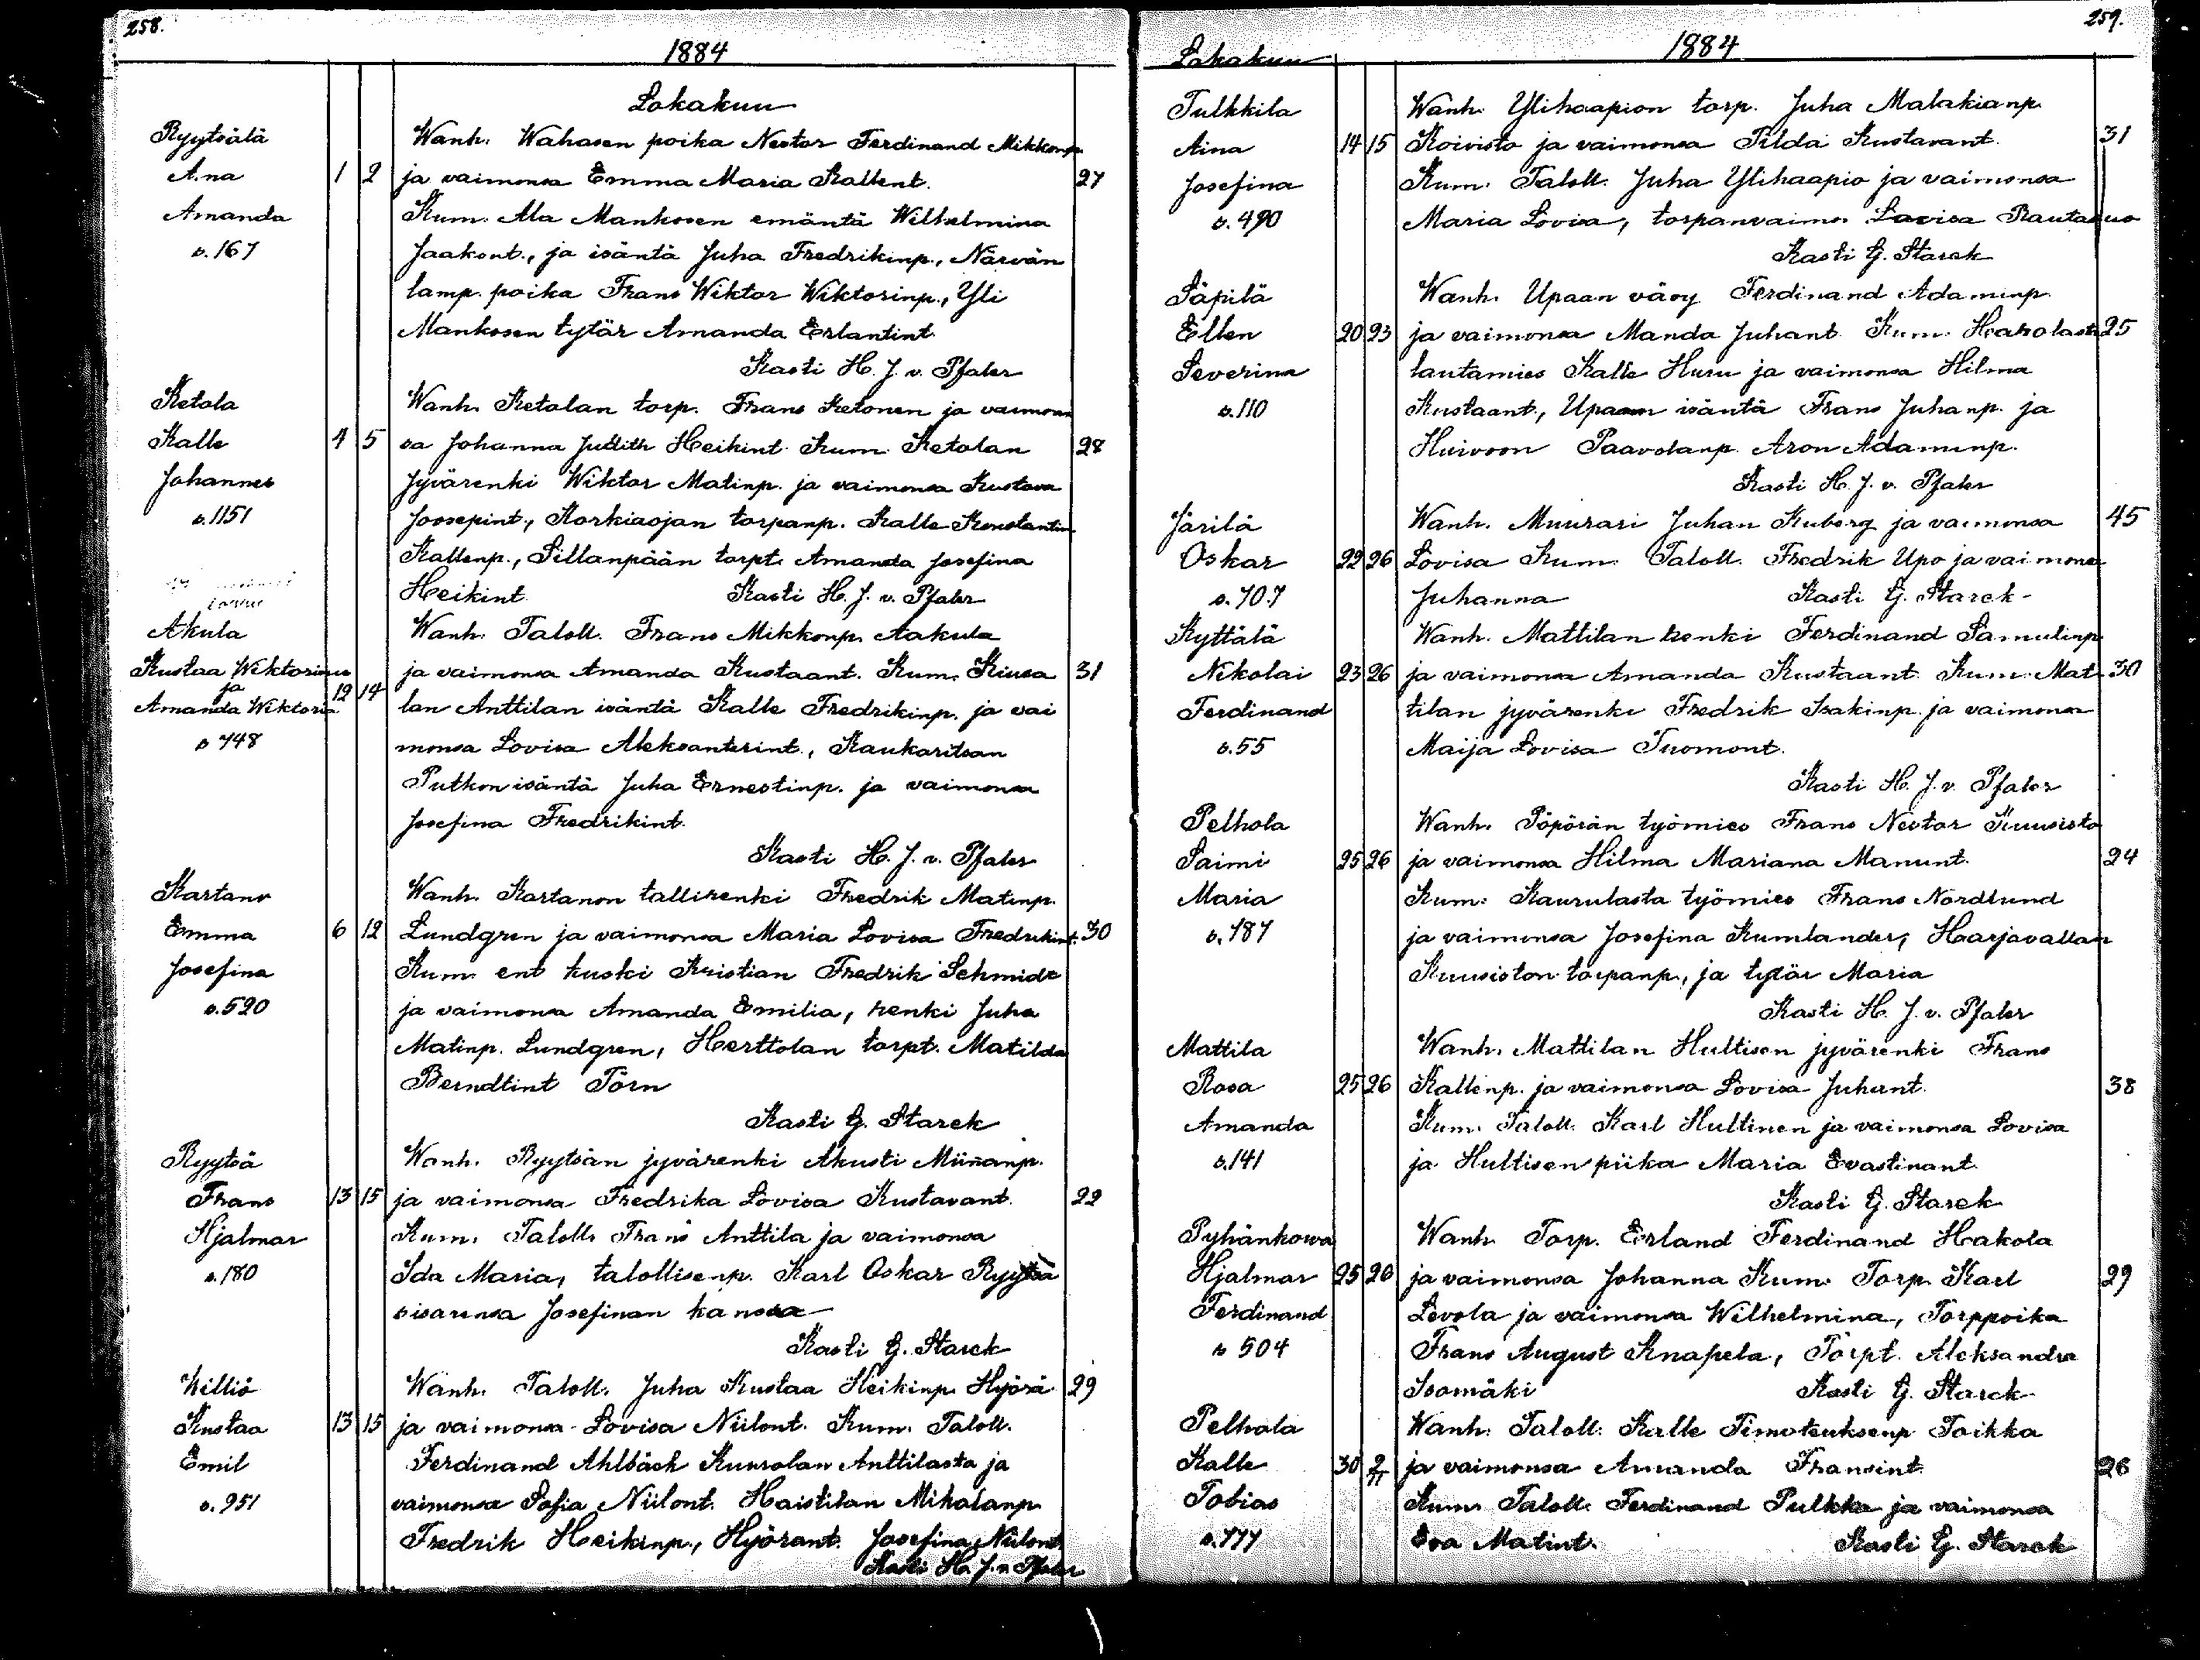 258.
1884
Lokakuu
Ryytsälä Wanh. Wahasen poika Nestor Ferdinand Mikkonp.
Aina 1 2 ja vaimonsa Emma Maria Kallent. 27
Amanda Kum. Ala Mankosen emäntä Wilhelmina
s. 167 Jaakont., ja isäntä Juha Fredrikinp., Närvän
lamp. poika Frans Wiktor Wiktorinp., Yli
Mankosen tytär Amanda Erlantint.
Kasti H. J. v. Pfaler
Ketola Wanh. Ketolan torp. Frans Ketonen ja vaimon
Kalle 4 5 sa Johanna Judith Heikint. Kum. Ketolan 28
Johannes Jyvärenki Wiktor Matinp. ja vaimonsa Kustava
s. 1151 Joosepint., Korkiaojan torpanp. Kalle Konstantin
Kallenp., Sillanpään torpt. Amanda Josefina
Heikint. Kasti H. J. v. Pfaler
Akula Wanh. Taloll. Frans Mikkonp. Aakula
Kustaa Wiktorinus ja vaimonsa Amanda Kustaant. Kum. Kiusa 31
ja 12 14
Amanda Wiktoria lan Anttilan isäntä Kalle Fredrikinp. ja vai
s 748 monsa Lovisa Aleksanterint., Kaukaritsan
Putkon isäntä Juha Ernestinp. ja vaimonsa
Josefina Fredrikint.
Kasti H. J. v. Pfaler
Kartano Wanh. Kartanon tallirenki Fredrik Matinp.
Emma 6 12 Lundgren ja vaimonsa Maria Lovisa Fredrikint. 30
Josefina Kum. ent kuski Kristian Fredrik Schmidt
s. 520 ja vaimonsa Amanda Emilia, renki Juha
Matinp. Lundgren, Herttolan torpt. Matilda
Berndtint Törn
Kasti G. Starck
Ryytsä Wanh. Ryytsän jyvärenki Akusti Miinanp.
Frans 13 15 ja vaimonsa Fredrika Lovisa Kustavant. 22
Hjalmar Kum. Taloll. Frans Anttila ja vaimonsa
s. 180 Ida Maria, talollisenp. Karl Oskar Ryytsä
sisarensa Josefinan kanssa
Kasti G. Starck
Williö Wanh. Taloll. Juha Kustaa Heikinp. Hyörä 29
Kustaa 13 15 ja vaimonsa Lovisa Niilont. Kum. Taloll.
Emil Ferdinand Ahlbäck Kuurolan Anttilasta ja
s. 951 vaimonsa Sofia Niilont. Haistilan Mikolanp.
Fredrik Heikinp., Hyörant. Josefina Niilont.
Kasti H. J. v. Pfaler
259.
Lokakuu 1884
Tulkkila Wanh. Ylihaapion torp. Juha Malakianp.
Aina 14 15 Koivisto ja vaimonsa Tilda Kustavant. 31
Josefina Kum. Taloll. Juha Ylihaapio ja vaimonsa
s. 490 Maria Lovisa, torpanvaimo Lovisa Rautasuo
Kasti G. Starck
Säpilä Wanh. Upaan vävy Ferdinand Adaminp.
Ellen 20 23 ja vaimonsa Manda Juhant. Kum. Hakolasta 25
Severina lautamies Kalle Huru ja vaimonsa Hilma
s. 110 Kustaant., Upaan isäntä Frans Juhanp. ja
Huivoon Paavolanp. Aron Adaminp.
Kasti H. J. v. Pfaler
Järilä Wanh. Muurari Juhan Kuberg ja vaimonsa 45
Oskar 22 26 Lovisa Kum. Taloll. Fredrik Upo ja vaimonsa
s. 707 Juhanna Kasti G. Starck
Kyttälä Wanh. Mattilan renki Ferdinand Samulinp.
Nikolai 23 26 ja vaimonsa Amanda Kustaant. Kum. Mat 30
Ferdinand tilan jyvärenki Fredrik Isakinp. ja vaimonsa
s. 55 Maija Lovisa Tuomont.
Kasti H. J. v. Pfaler
Pelhola Wanh. Pöpörän työmies Frans Nestor Kuusisto
Saimi 25 26 ja vaimonsa Hilma Mariana Manunt. 24
Maria Kum. Kaurulasta työmies Frans Nordlund
s. 187 ja vaimonsa Josefina Kumlander, Harjavallan
Kuusiston torpanp., ja tytär Maria
Kasti H. J. v. Pfaler
Mattila Wanh. Mattilan Hultisen jyvärenki Frans
Rosa 25 26 Kallenp. ja vaimonsa Lovisa Juhant. 38
Amanda Kum. Taloll. Karl Hultinen ja vaimonsa Lovisa
s. 141 ja Hultisen piika Maria Evastinant.
Kasti G. Starck
Pyhänkorva Wanh. Torp. Erland Ferdinand Hakola
Hjalmar 25 26 ja vaimonsa Johanna Kum. Torp. Karl 29
Ferdinand Levola ja vaimonsa Wilhelmina, Torppoika
s 504 Frans August Knapela, Torpt. Aleksandra
Isomäki Kasti G. Starck
Pelhola Wanh. Taloll. Kalle Timoteuksenp Toikka
Kalle 30 2/11 ja vaimonsa Amanda Fransint. 26
Tobias Kum. Taloll. Ferdinand Pulkka ja vaimonsa
s. 777 Eva Matint. Kasti G. Starck